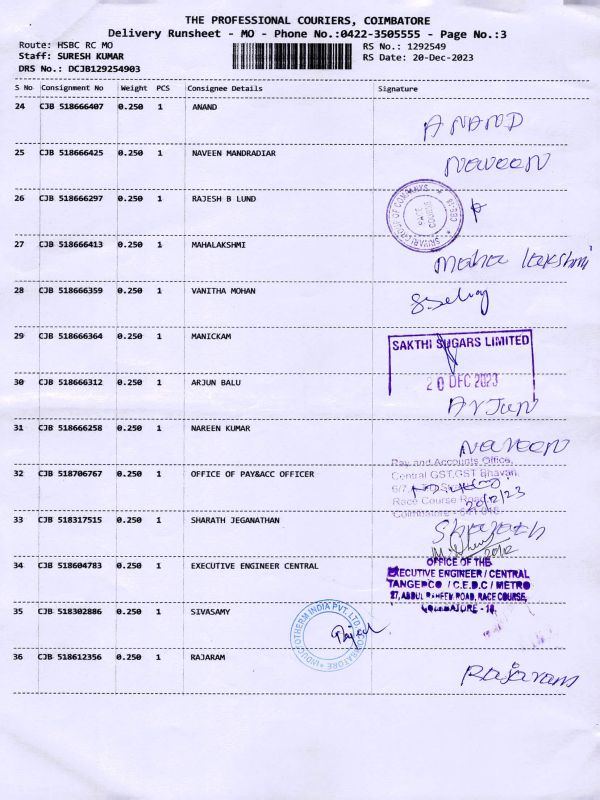 THE PROFESSIONAL COURIERS, COIMBATORE
Delivery Runsheet - MO - Phone No.:0422-3505555 - Page No.:3
Route: HSBC RC MO
RS No.: 1292549
Staff: SURESH KUMAR
RS Date: 20-Dec-2023
DRS No.: DCJB129254903
S No Consignment No Weight PCS Consignee Details Signature
24 CJB 518666407 0.250 1 ANAND
ANAND
25 CJB 518666425 0.250 1 NAVEEN MANDRADIAR
Naveen
26 CJB 518666297 0.250 1 RAJESH B LUND
27 CJB 518666413 0.250 1 MAHALAKSHMI
Maha lakshmi
28 CJB 518666359 0.250 1 VANITHA MOHAN
29 CJB 518666364 0.250 1 MANICKAM
SAKTHI SUGARS LIMITED
20 DEC 2023
30 CJB 518666312 0.250 1 ARJUN BALU
Arjun
31 CJB 518666258 0.250 1 NAREEN KUMAR
Naveen
32 CJB 518706767 0.250 1 OFFICE OF PAY&ACC OFFICER
Pay and Accounts Office,
Central GST,GST Bhavan,
Race Course Road
20/12/23
33 CJB 518317515 0.250 1 SHARATH JEGANATHAN
Sharath
34 CJB 518604783 0.250 1 EXECUTIVE ENGINEER CENTRAL
OFFICE OF THE
EXECUTIVE ENGINEER / CENTRAL
TANGEDCO / C.E.D.C / METRO
RACE COURSE,
35 CJB 518302886 0.250 1 SIVASAMY
INDUCTOTHERM INDIA PVT. LTD
COIMBATORE
36 CJB 518612356 0.250 1 RAJARAM
Rajaram